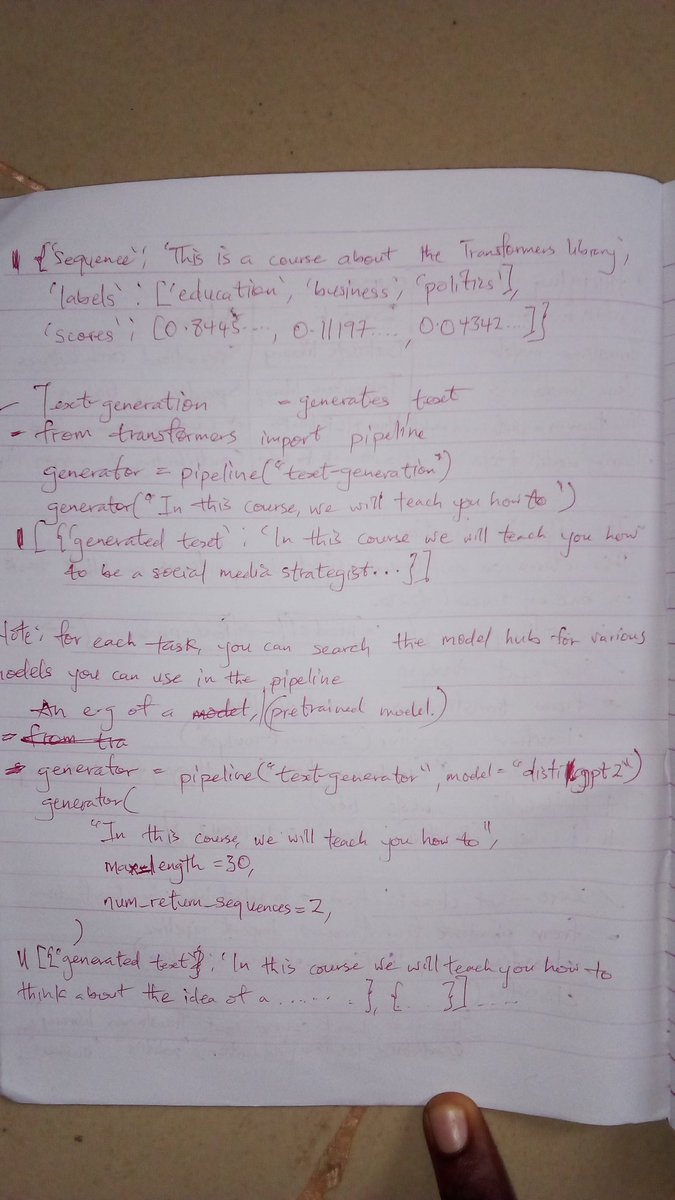 {'Sequence'; 'This is a course about the Transformers library',
'labels': ['education', 'business', 'politics'],
'scores'; [0.8445...., 0.11197...., 0.04342...]}
- Text-generation - generates text
- from transformers import pipeline
generator = pipeline("text-generation")
generator("In this course, we will teach you how to")
[{'generated text'; 'In this course we will teach you how
to be a social media strategist...}]
Note; for each task, you can search the model hub for various
models you can use in the pipeline
An e.g of a model, (pretrained model.)
from tra
generator = pipeline("text-generator", model = "distilgpt2")
generator(
"In this course, we will teach you how to",
max_length = 30,
num_return_sequences = 2,
)
[{'generated text'}; 'In this course we will teach you how to
think about the idea of a .......}, {... }].....